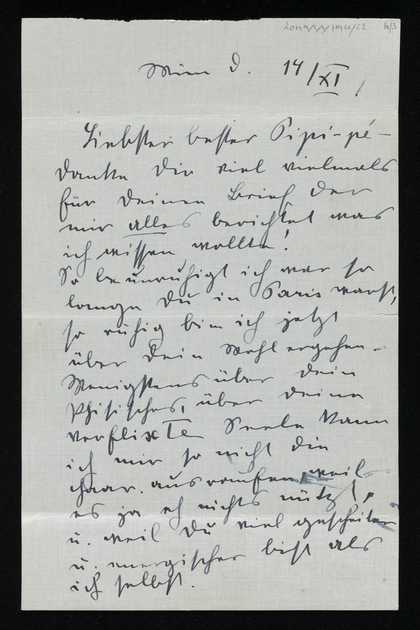 Wien d. 14/XI
Liebster bester Pipi-pé-
danke dir viel vielmals
für deinen Brief der
mir alles berichtet was
ich wissen wollte!
So beunruhigt ich war so
lange Du in Paris warst,
so ruhig bin ich jetzt
über Dein Wohlergehen -
Wenigstens über dein
Phisisches, über deine
verflixte Seele kann
ich mir so nicht die
Haar ausraufen, weil
es ja eh nichts nützt,
u. weil Du viel gescheiter
u. energischer bist als
ich selbst.